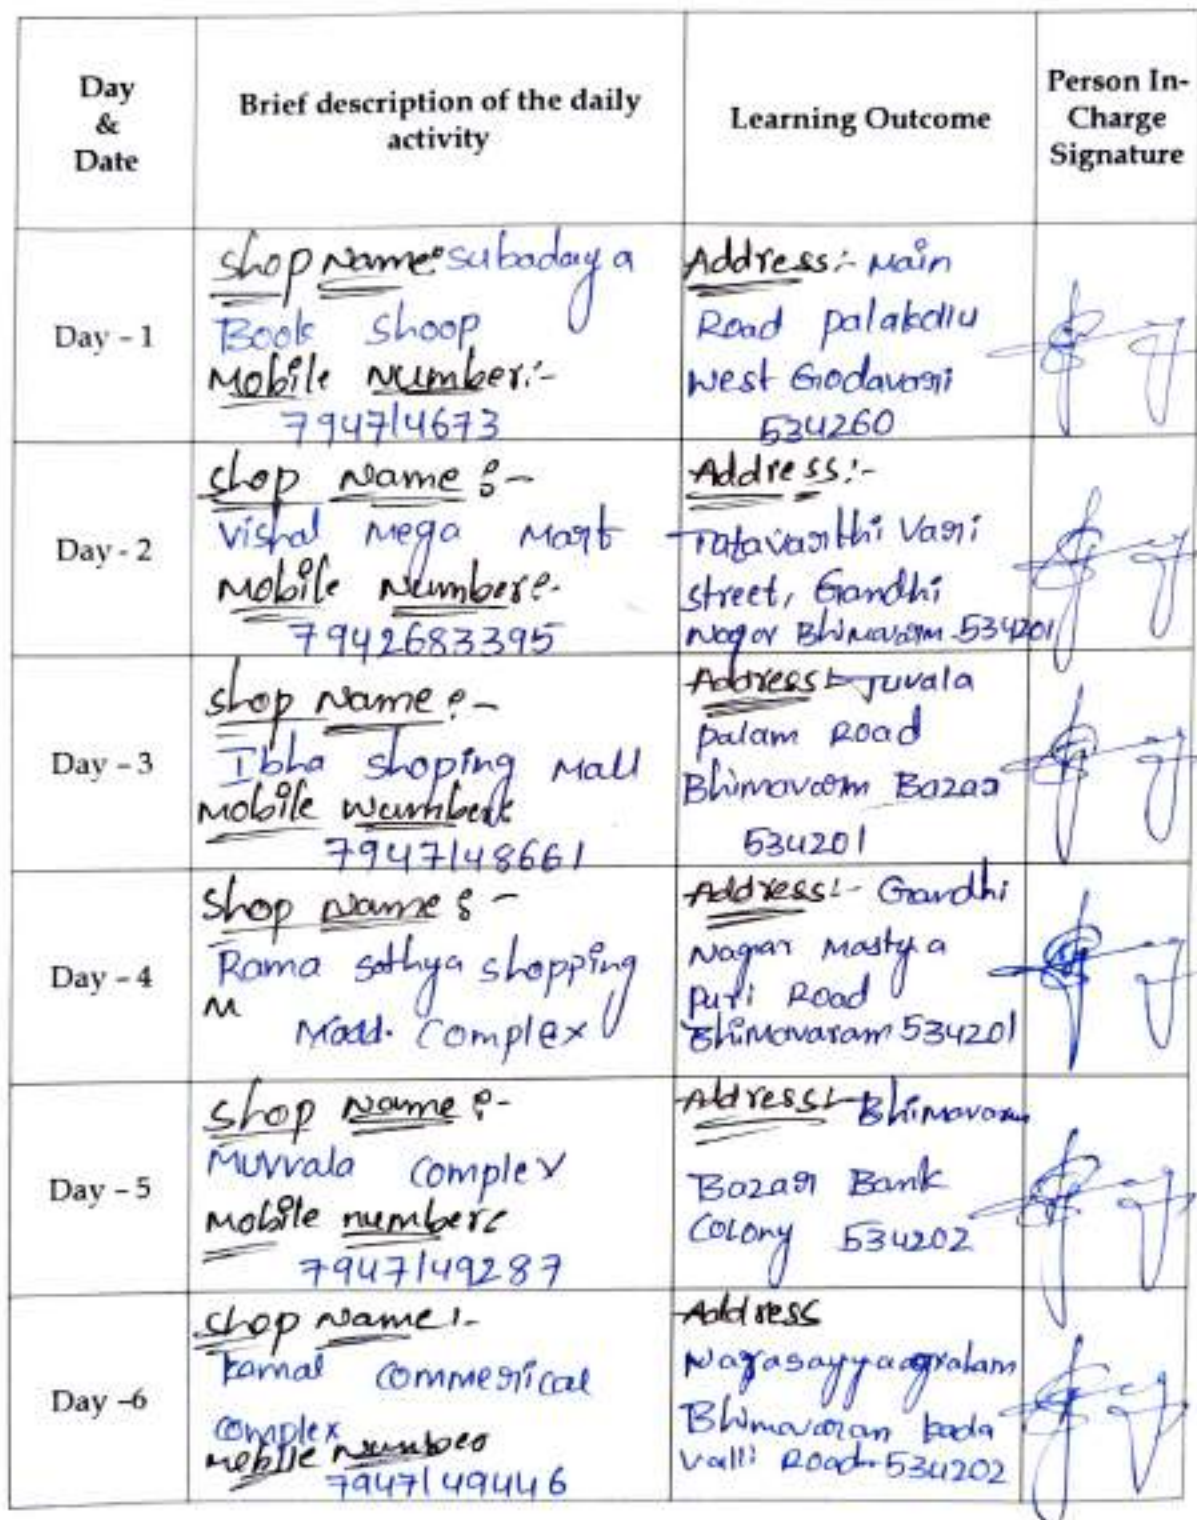 Day & Date
Brief description of the daily activity
Learning Outcome
Person In-Charge Signature
Day - 1
Shop Name: Subadaya
Book Shoop
Mobile Number:-
794714673
Address:- Main
Road palakollu
West Godavari
534260
Day - 2
Shop Name :-
Vishal Mega Mart
Mobile Number:-
79426833395
Address:-
Tatavarthi Vari
street, Gandhi
Nagar Bhimavaram 534201
Day - 3
Shop Name :-
Ibha shoping Mall
Mobile Number:
7947148661
Address:- Juvala
palam Road
Bhimavaram Bazar
534201
Day - 4
Shop Name :-
Rama Sathya shopping
M
Mall. Complex
Address:- Gandhi
Nagar Mastya
puri Road
Bhimavaram 534201
Day - 5
Shop Name :-
Muvvala complex
Mobile number:
7947149287
Address:- Bhimavaram
Bazar Bank
Colony 534202
Day -6
Shop Name :-
Kamal commerical
complex
Mobile Number
7947149446
Address
Narasayyaagralam
Bhimavaram
valli Road-534202